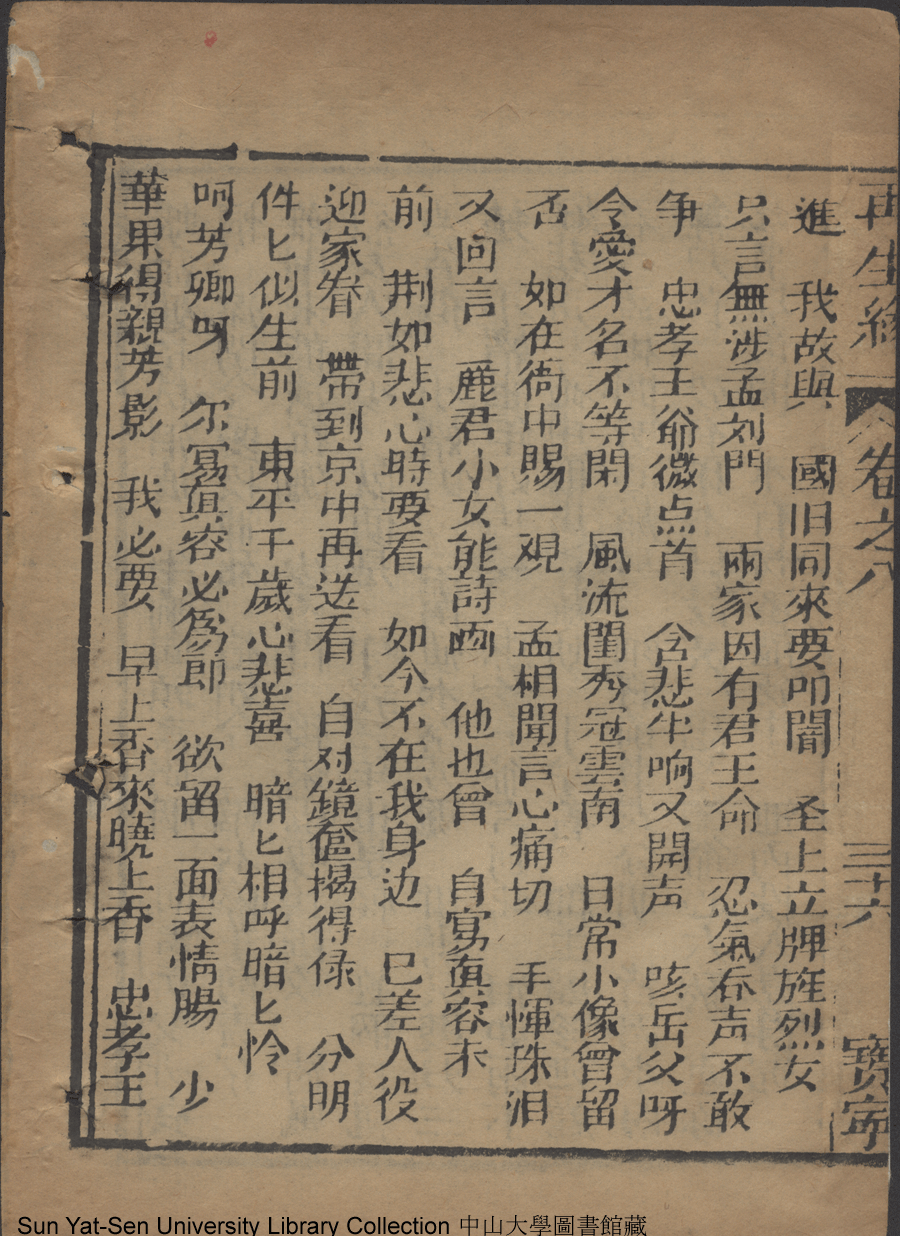 再生緣 卷之八 三十六 寶寧
進 我故與 國旧同來要叩閽 圣上立牌旌烈女
只言無涉孟刘門 兩家因有君王命 忍氣吞声不敢
争 忠孝王爺微点首 含悲半晌又開声 咳岳父呀
令愛才名不等閑 風流闺秀冠雲南 日常小像曾留
否 如在衙中賜一观 孟相聞言心痛切 手惲珠泪
又回言 麗君小女能詩画 他也曾 自寫真容未
前 荆如悲心時要看 如今不在我身边 巳差人役
迎家眷 帶到京中再送看 自对鏡奩揭得 分明
件匕似生前 東平千歲心悲喜 暗匕相呼暗匕怜
呵芳卿呀 尔寫真容必為節 欲留一面表情腸 少
華果得親芳影 我必要 早上香來曉上香 忠孝王
Sun Yat-Sen University Library Collection 中山大學圖書館藏